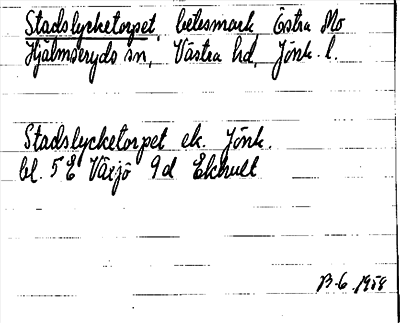 Stadslycketorpet, betesmark Östra Mo
Hjälmseryds sn, Västra hd, Jönk. l.
Stadslycketorpet ek. Jönk.
bl. 5 E Växjö 9 d Ekhult
B. G. 1958